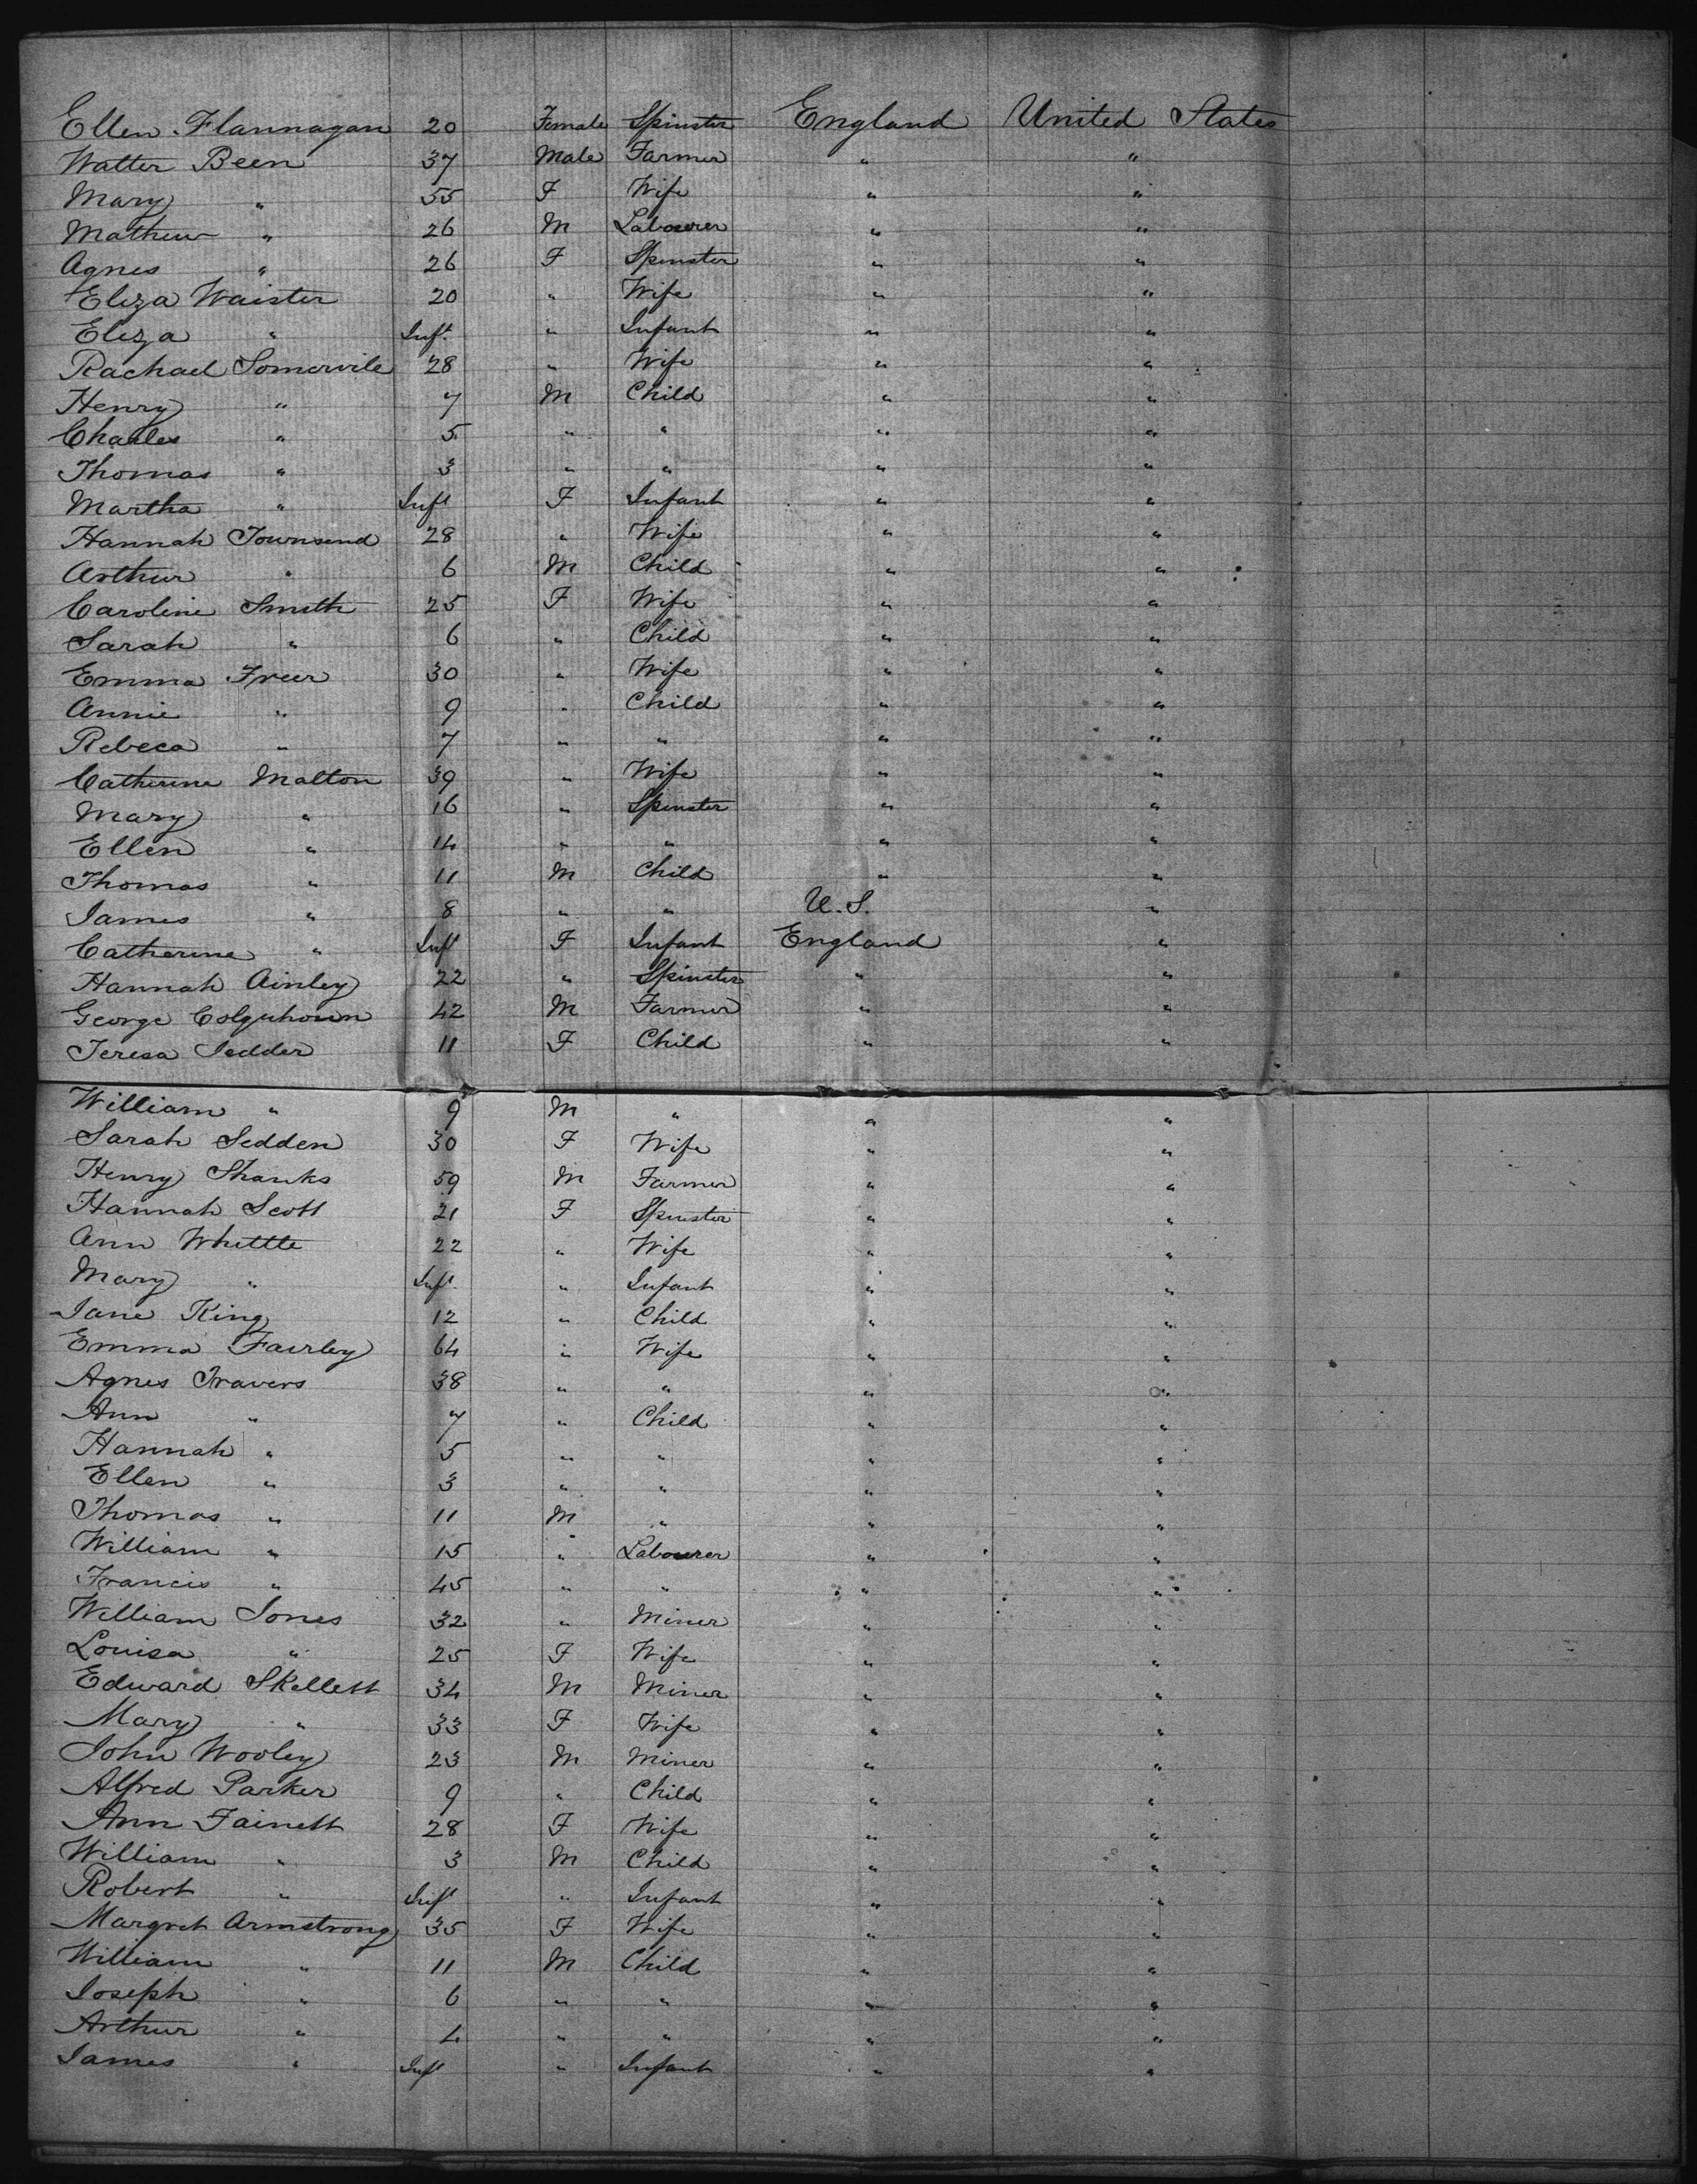 Ellen Flannagan 20 Female Spinster England United States
Walter Been 37 Male Farmer " "
Mary " 55 F Wife " "
Mathew " 26 M Labourer " "
Agnes " 26 F Spinster " "
Eliza Waister 20 " Wife " "
Eliza " Inft. " Infant " "
Rachael Somervile 28 " Wife " "
Henry " 7 M Child " "
Charles " 5 " " " "
Thomas " 3 " " " "
Martha " Inft F Infant " "
Hannah Townsend 28 " Wife " "
Arthur " 6 M Child " "
Caroline Smith 25 F Wife " "
Sarah " 6 " Child " "
Emma Freer 30 " Wife " "
Annie " 9 " Child " "
Rebeca " 7 " " " "
Catherine Malton 39 " Wife " "
Mary " 16 " Spinster " "
Ellen " 14 " " " "
Thomas " 11 M Child " "
James " 8 " " U.S. "
Catherine " Inft F Infant England "
Hannah Ainley 22 " Spinster " "
George Colquhoun 42 M Farmer " "
Teresa Sedder 11 F Child " "
William " 9 M " " "
Sarah Sedden 30 F Wife " "
Henry Shanks 59 M Farmer " "
Hannah Scott 21 F Spinster " "
Ann Whittle 22 " Wife " "
Mary " Inft " Infant " "
Jane King 12 " Child " "
Emma Fairley 64 " Wife " "
Agnes Travers 38 " " " "
Ann " 7 " Child " "
Hannah " 5 " " " "
Ellen " 3 " " " "
Thomas " 11 M " " "
William " 15 " Labourer " "
Francis " 45 " " " "
William Jones 32 " Miner " "
Louisa " 25 F Wife " "
Edward Skellett 34 M Miner " "
Mary " 33 F Wife " "
John Wooley 23 M Miner " "
Alfred Parker 9 " Child " "
Ann Fainett 28 F Wife " "
William " 3 M Child " "
Robert " Inft " Infant " "
Margret Armstrong 35 F Wife " "
William " 11 M Child " "
Joseph " 6 " " " "
Arthur " 4 " " " "
James " Inft " Infant " "